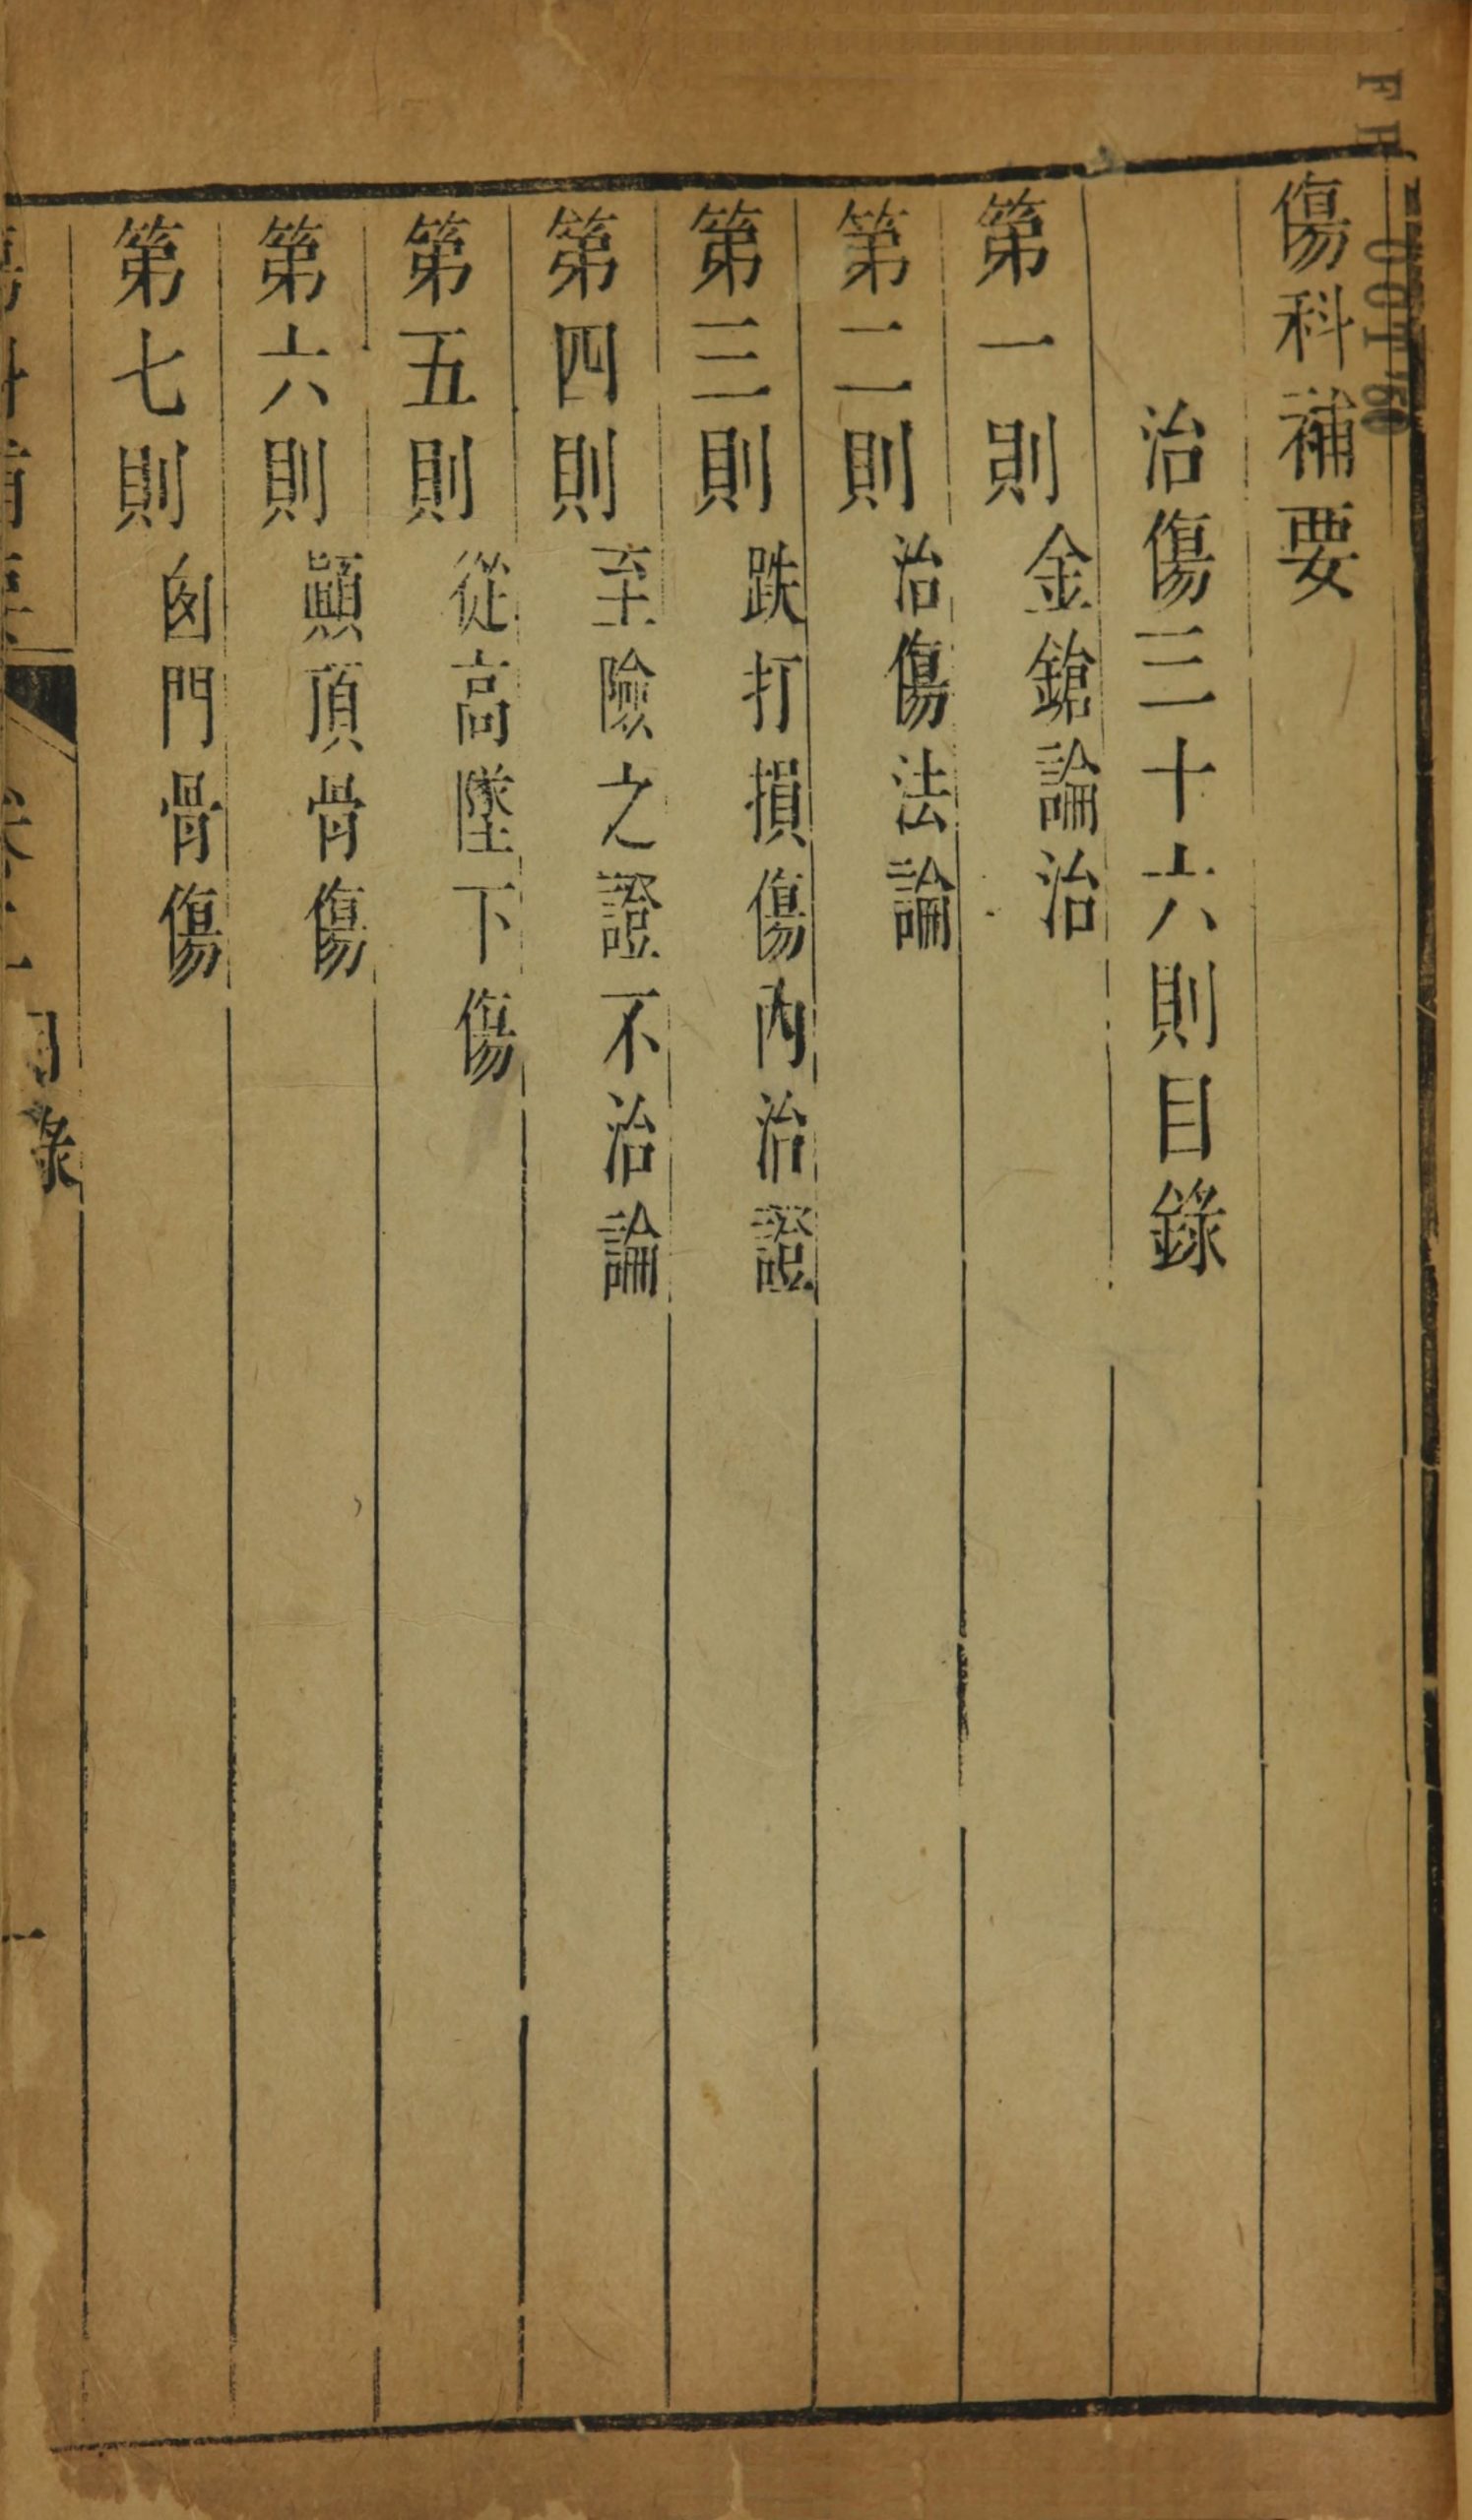 傷科補要
治傷三十六則目錄
第一則 金鎗論治
第二則 治傷法論
第三則 跌打損傷內治證
第四則 至險之證不治論
第五則 從高墜下傷
第六則 顚頂骨傷
第七則 囟門骨傷